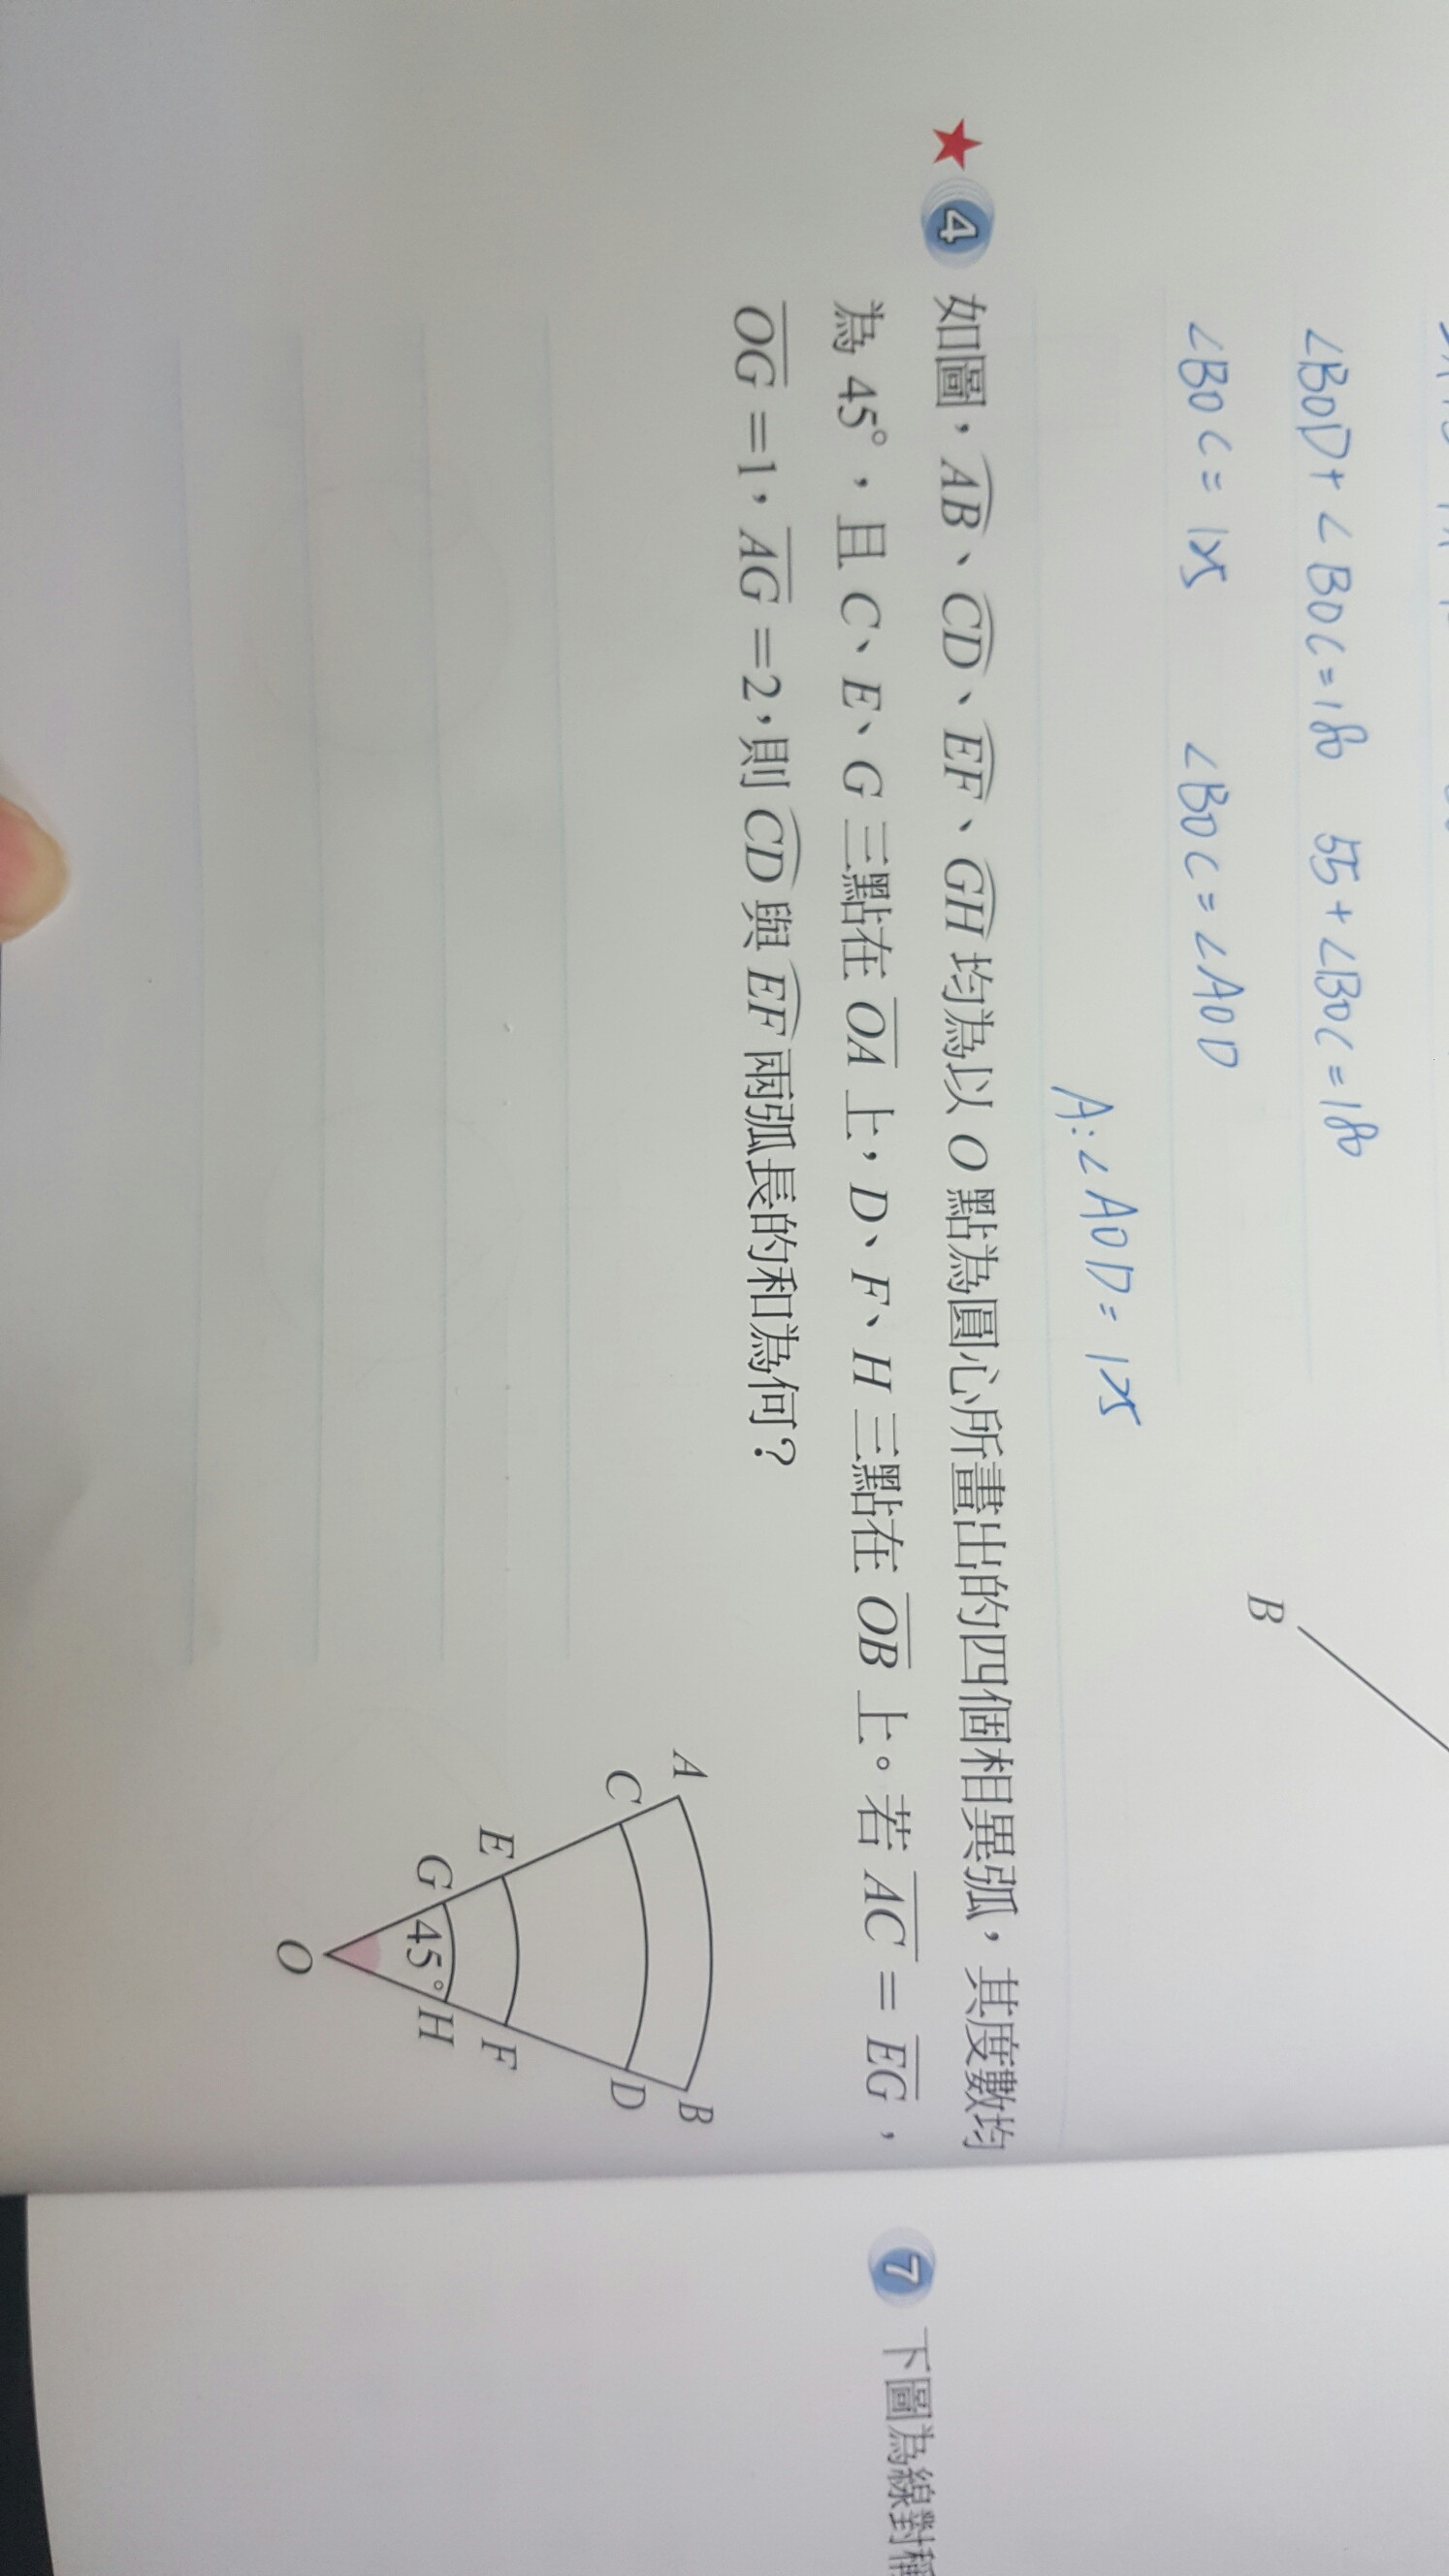 ∠BOD+∠BOC=180 55+∠BOC=180
∠BOC=125 ∠BOC=∠AOD
A:∠AOD=125
B
★ 4 如圖，AB、CD、EF、GH 均為以 O 點為圓心所畫出的四個相異弧，其度數均
為 45°，且 C、E、G 三點在 OA 上，D、F、H 三點在 OB 上。若 AC = EG，
OG =1，AG =2，則 CD 與 EF 兩弧長的和為何？
A
B
C
D
E
F
G
45°
H
O
7 下圖為線對稱